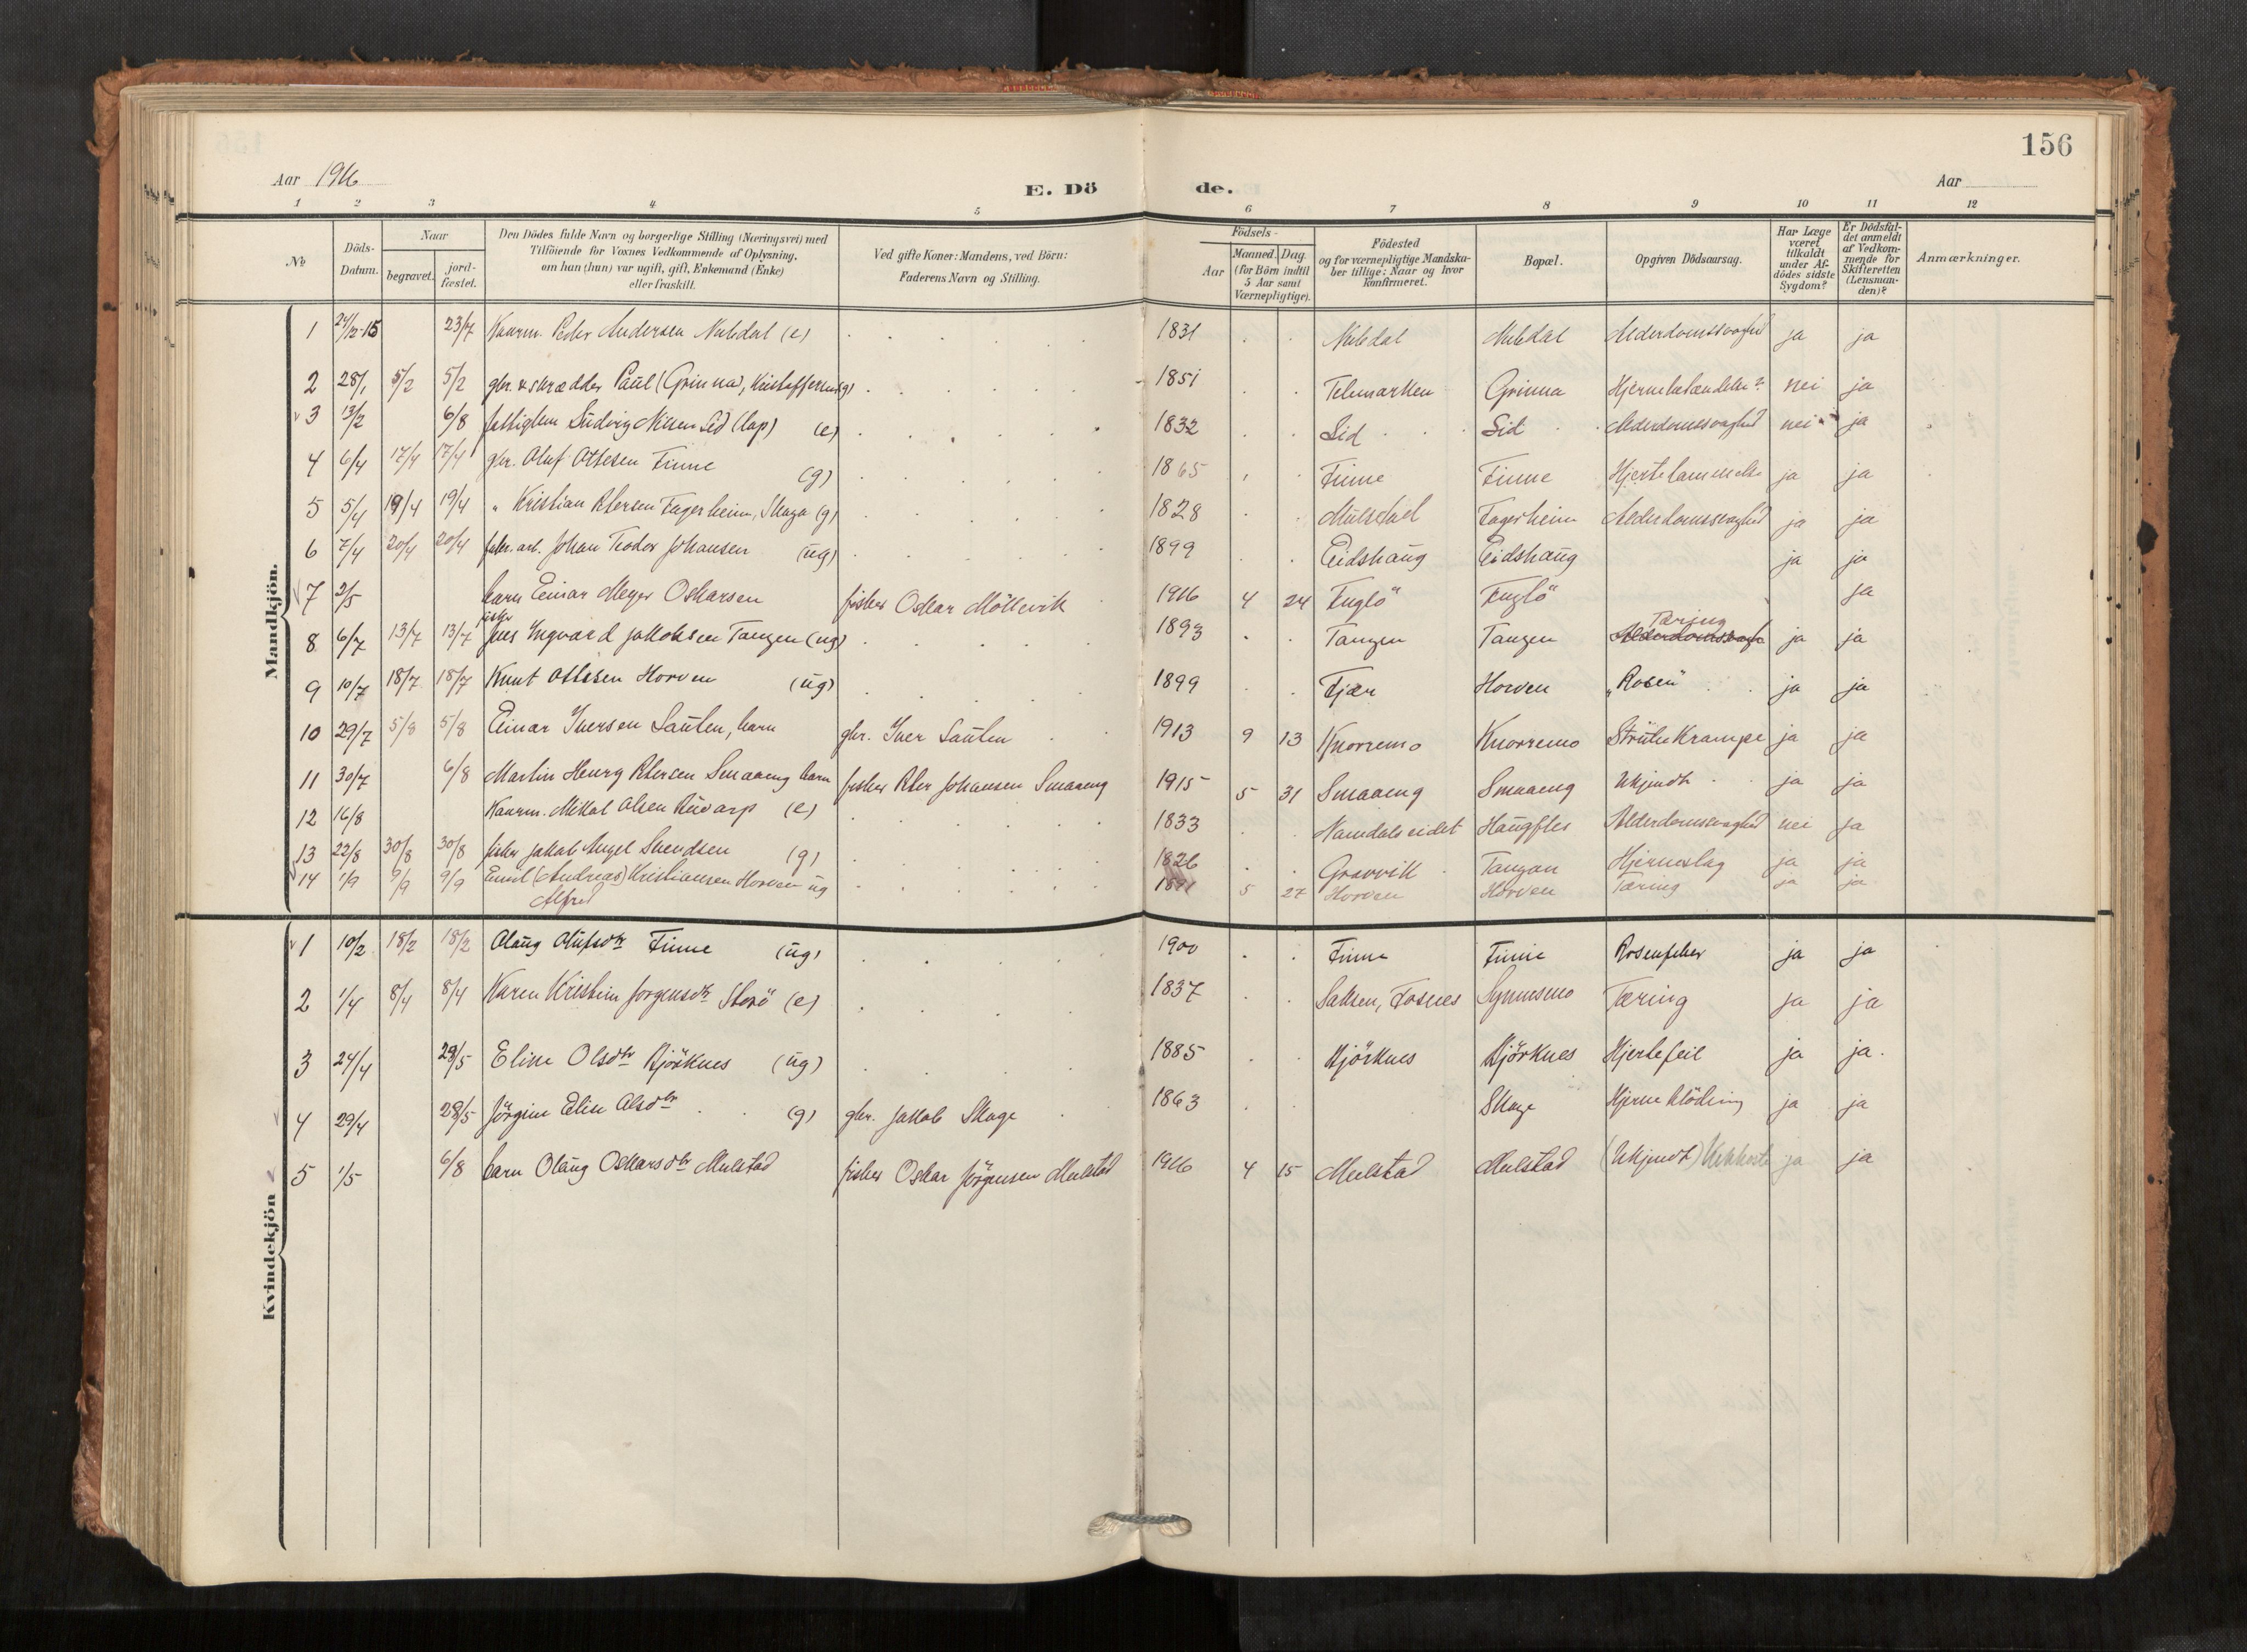 156
Aar 1916
E. Döde.
Aar
1 2 3 4 5 6 7 8 9 10 11 12
No
Döds-Datum.
Naar
begravet.
jordfæstet.
Den Dödes fulde Navn og borgerlige Stilling (Næringsvei) med
Tilföiende for Voxnes Vedkommende af Oplysning,
om han (hun) var ugift, gift, Enkemand (Enke)
eller fraskilt.
Ved gifte Koner: Mandens, ved Börn:
Faderens Navn og Stilling.
Födsels-
Aar
Maaned. Dag.
(for Börn indtil
5 Aar samt
Værnepligtige).
Födested
og for værnepligtige Mandskaber tillige: Naar og hvor
konfirmeret.
Bopæl.
Opgiven Dödsaarsag.
Har Læge
været
tilkaldt
under Afdödes sidste
Sygdom?
Er Dödsfaldet anmeldt
af Vedkommende for
Skifteretten
(Lensmanden)?
Anmærkninger.
Mandkjön.
1 24/12-15 23/7 Kaarm. Peder Andersen Nubdal (e) 1831 Nubdal Nubdal Alderdomssvaghed ja ja
2 28/1 5/2 5/2 gbr. & skrædder Paul (Grinna), Kristoffersen (g) 1851 Telemarken Grinna Hjernebetændelse? nei ja
3 13/2 6/8 fattiglem Ludvig Nilsen Lid (lap) (e) 1832 Lid Lid Alderdomssvaghed nei ja
4 6/4 17/4 17/4 gbr. Oluf Ottesen Finne (g) 1865 Finne Finne Hjertelammelse ja ja
5 5/4 19/4 19/4 " Kristian Petersen Fagerheim, Skage (g) 1828 Mulstad Fagerheim Alderdomssvaghed ja ja
6 7/4 20/4 20/4 fabr. arb. Johan Teodor Johansen (ug) 1899 Eidshaug Eidshaug ja ja
7 2/5 barn Einar Meyer Oskarsen fisker Oskar Möllevik 1916 4 24 Fuglö Fuglö ja
8 6/7 13/7 13/7 fisker Jens Ingvard Jakobsen Tangen (ug) 1893 Tangen Tangen Tæring ja ja
9 10/7 18/7 18/7 Knut Ottesen Horven (ug) 1899 Fjær Horven "Rosen" ja ja
10 29/7 5/8 5/8 Einar Iversen Sauten, barn gbr. Iver Sauten 1913 9 13 Knorremo Knorremo Strubekrampe ja ja
11 30/7 6/8 Martin Henry Petersen Smaaeng barn fisker Peter Johansen Smaaeng 1915 5 31 Smaaeng Smaaeng Ukjendt ja ja
12 16/8 Kaarm. Mikal Olsen (e) 1833 Namdalseidet Haugfles Alderdomssvaghed nei ja
13 22/8 30/8 30/8 fisker Jakob Angel Svendsen (g) 1826 Gravvik Tangan Hjerneslag ja ja
14 1/9 9/9 9/9 Emil (Andreas) Kristiansen Horven ug 1891 5 27 Horven Horven Tæring ja ja
Alfred
Kvindekjön
1 10/2 18/2 18/2 Olaug Olufsdtr Finne (ug) 1900 Finne Finne Rosenfeber ja ja
2 1/4 8/4 8/4 Karen Kristine Jörgensdtr Storö (e) 1837 Salsen, Fosnes Synnesmo Tæring ja ja
3 24/4 28/5 Eline Olsdtr Bjørknes (ug) 1885 Bjørknes Bjørknes Hjertefeil ja ja
4 29/4 28/5 Jörgine Elise Olsdtr (g) gbr. Jakob Skage 1863 Skage Hjerneblödning ja ja
5 1/5 6/8 barn Olaug Oskarsdtr Mulstad fisker Oskar Jörgensen Mulstad 1916 4 15 Mulstad Mulstad (Ukjendt) Kikhoste ja ja